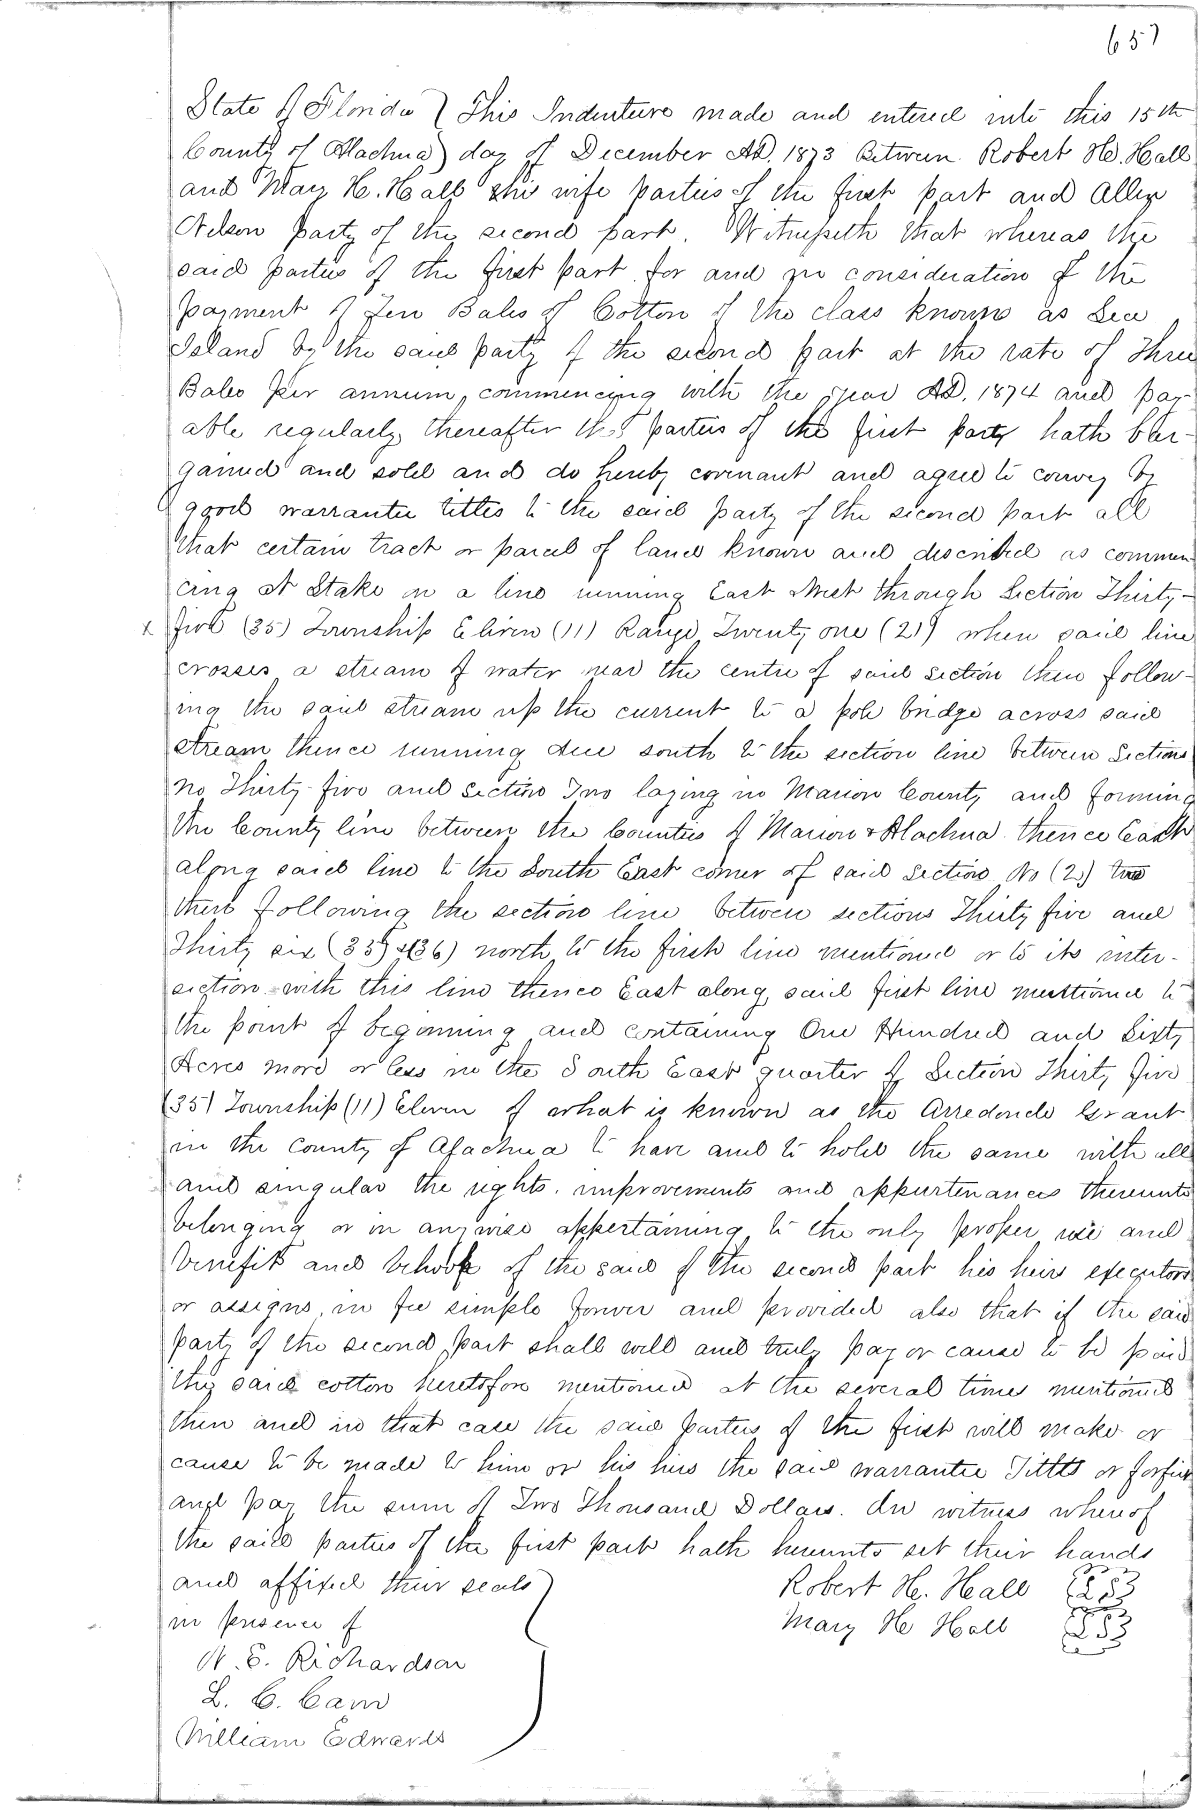 657
State of Florida ) This Indenture made and entered into this 15th
County of Alachua ) day of December AD. 1873 Between Robert H. Hall
and Mary H. Hall his wife parties of the first part and Allen
Nelson party of the second part. Witnesseth that whereas the
said parties of the first part for and in consideration of the
payment of Ten Bales of Cotton of the class known as Sea
Island by the said party of the second part at the rate of Three
Bales per annum, commencing with the year AD. 1874 and pay-
able regularly thereafter the parties of the first party hath bar-
gained and sold and do hereby covenant and agree to convey by
good warrantee titles to the said party of the second part all
that certain tract or parcel of land known and described as commen
cing at Stake on a line running East & West through Section Thirty-
x five (35) Township Eleven (11) Range Twenty one (21) when said line
crosses a stream of water near the centre of said section then follow-
ing the said stream up the current to a pole bridge across said
stream thence running due south to the section line between Sections
No Thirty-five and section Two laying in Marion County and forming
the County line between the Counties of Marion & Alachua thence East
along said line to the South East corner of said section No (2) two
then following the section line between sections Thirty five and
Thirty six (35) & (36) north to the first line mentioned or to its inter-
section with this line thence East along said first line mentioned to
the point of beginning and containing One Hundred and Sixty
Acres more or less in the South East quarter of Section Thirty five
(35) Township (11) Eleven of what is known as the Arredondo Grant
in the County of Alachua to have and to hold the same with all
and singular the rights, improvements and appurtenances thereunto
belonging or in anywise appertaining to the only proper use and
benefit and behoof of the said of the second part his heirs executors
or assigns, in fee simple forever and provided also that if the said
party of the second part shall well and truly pay or cause to be paid
the said cotton heretofore mentioned at the several times mentioned
then and in that case the said parties of the first will make or
cause to be made to him or his heirs the said warrantee Titles or forfeit
and pay the sum of Two Thousand Dollars. In witness whereof
the said parties of the first part hath hereunto set their hands
and affixed their seals ) Robert H. Hall LS
in presence of Mary H Hall LS
N. E. Richardson
L. C. Cam
William Edwards